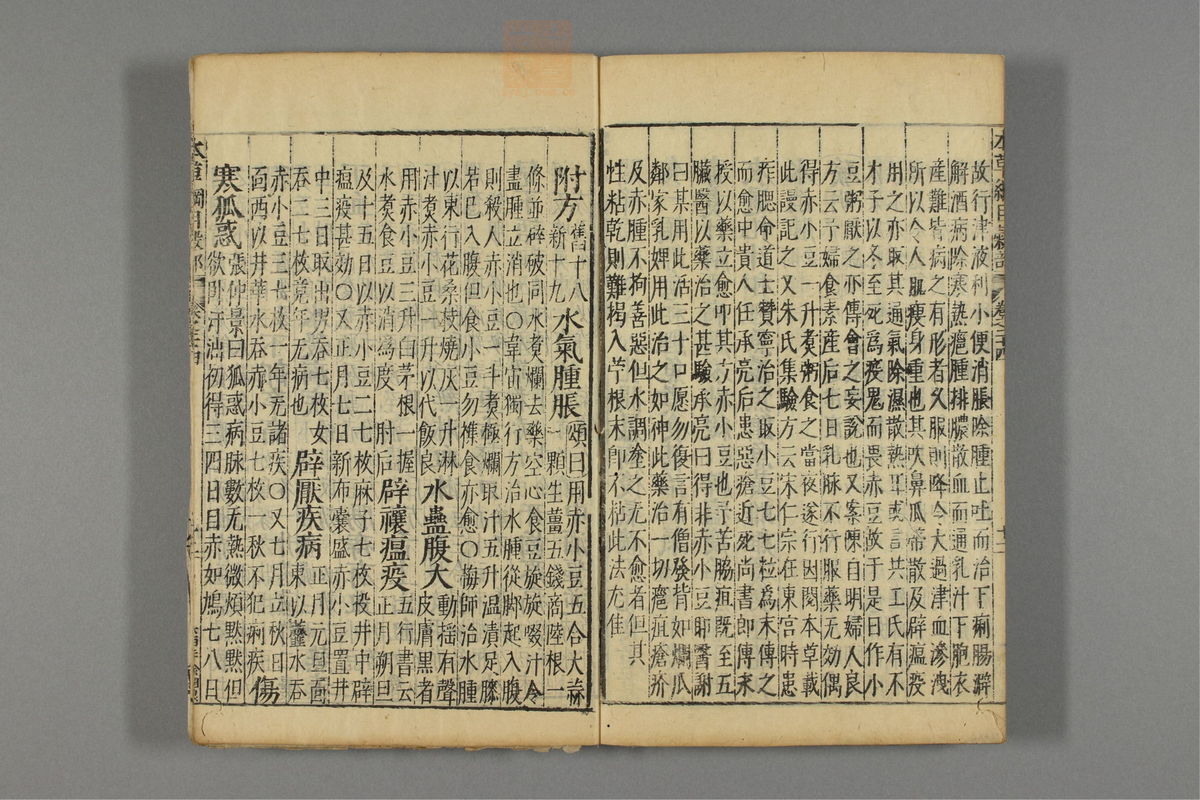 故行津液利小便消脹除腫止吐而治下痢腸澼
解酒病除寒熱癰腫排膿散血而通乳汁下胞衣
產難皆病之有形者久服則降令太過津血滲洩
所以令人肌瘦身重也其吹鼻瓜蒂散及辟瘟疫
用之亦取其通氣除濕散熱耳或言共工氏有不
才子以冬至死為疫鬼而畏赤豆故于是日作小
豆粥厭之亦傅會之妄說也又案陳自明婦人良
方云予婦食素產后七日乳脉不行服藥无効偶
得赤小豆一升煑粥食之當夜遂行因閱本草載
此謾記之又朱氏集驗方云宋仁宗在東宮時患
痄腮命道士贊寧治之取小豆七七粒為末傅之
而愈中貴人任承亮后患惡瘡近死尚書郎傅求
授以藥立愈叩其方赤小豆也予苦脇疽既至五
臟醫以藥治之甚驗承亮曰得非赤小豆耶醫謝
曰某用此活三十口愿勿復言有僧發背如爛瓜
鄰家乳婢用此治之如神此藥治一切癰疽瘡疥
及赤腫不拘善惡但水調塗之无不愈者但其
性粘乾則難揭入苧根末即不粘此法尤佳
附方舊十八新十九水氣腫脹頌曰用赤小豆五合大蒜一顆生薑五錢商陸根一
條並碎破同水煑爛去藥空心食豆旋旋啜汁令
盡腫立消也〇韋宙獨行方治水腫從脚起入腹
則殺人赤小豆一斗煑極爛取汁五升温漬足膝
若已入腹但食小豆勿襍食亦愈〇梅師治水腫
以東行花桑枝燒灰一升淋
汁煑赤小豆一升以代飯良水蠱腹大動搖有聲皮膚黒者
用赤小豆三升白茅根一握
水煑食豆以消為度肘后辟禳瘟疫五行書云正月朔旦
及十五日以赤小豆二七枚麻子七枚投井中辟
瘟疫甚効〇又正月七日新布囊盛赤小豆置井
中三日取出男吞七枚女
吞二七枚竟年无病也辟厭疾病正月元旦面東以虀水吞
赤小豆三七枚一年无諸疾〇又七月立秋日
面西以井華水吞赤小豆七枚一秋不犯痢疾傷
寒狐惑張仲景曰狐惑病脉數无熱微煩黙黙但欲臥汗出初得三四日目赤如鳩七八日